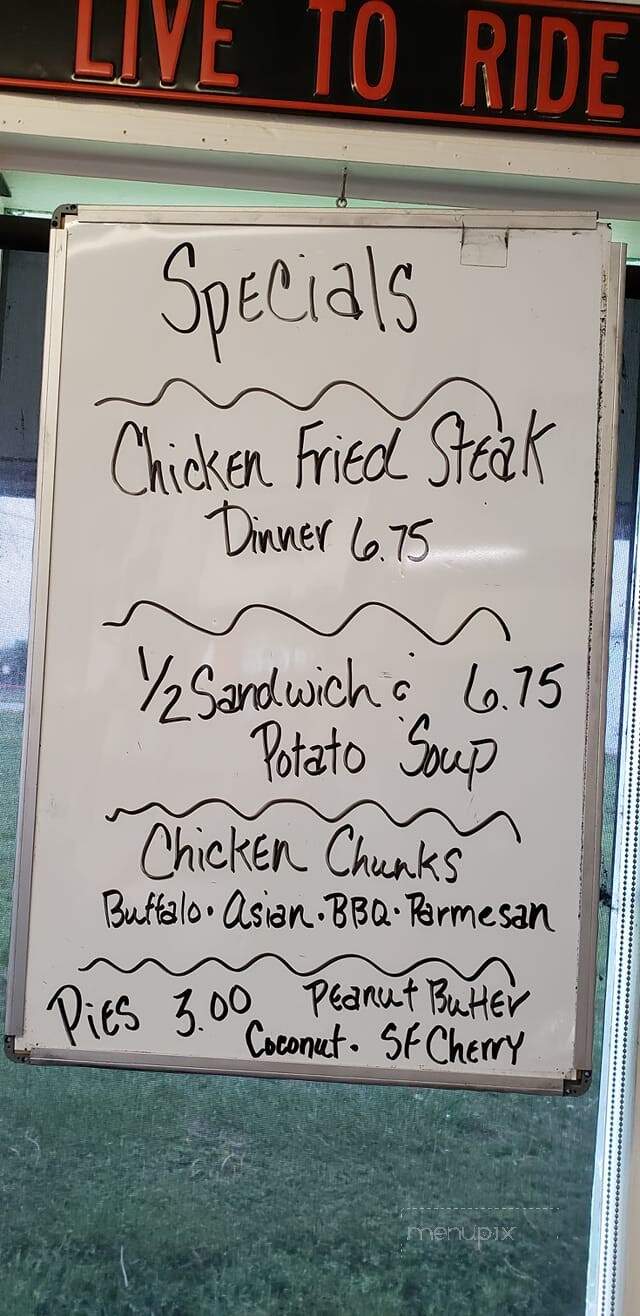 LIVE TO RIDE
Specials
Chicken Fried Steak
Dinner 6.75
1/2 Sandwich & 6.75
Potato Soup
Chicken Chunks
Buffalo • Asian • BBQ • Parmesan
Pies 3.00 Peanut Butter
Coconut • SF Cherry
menupix